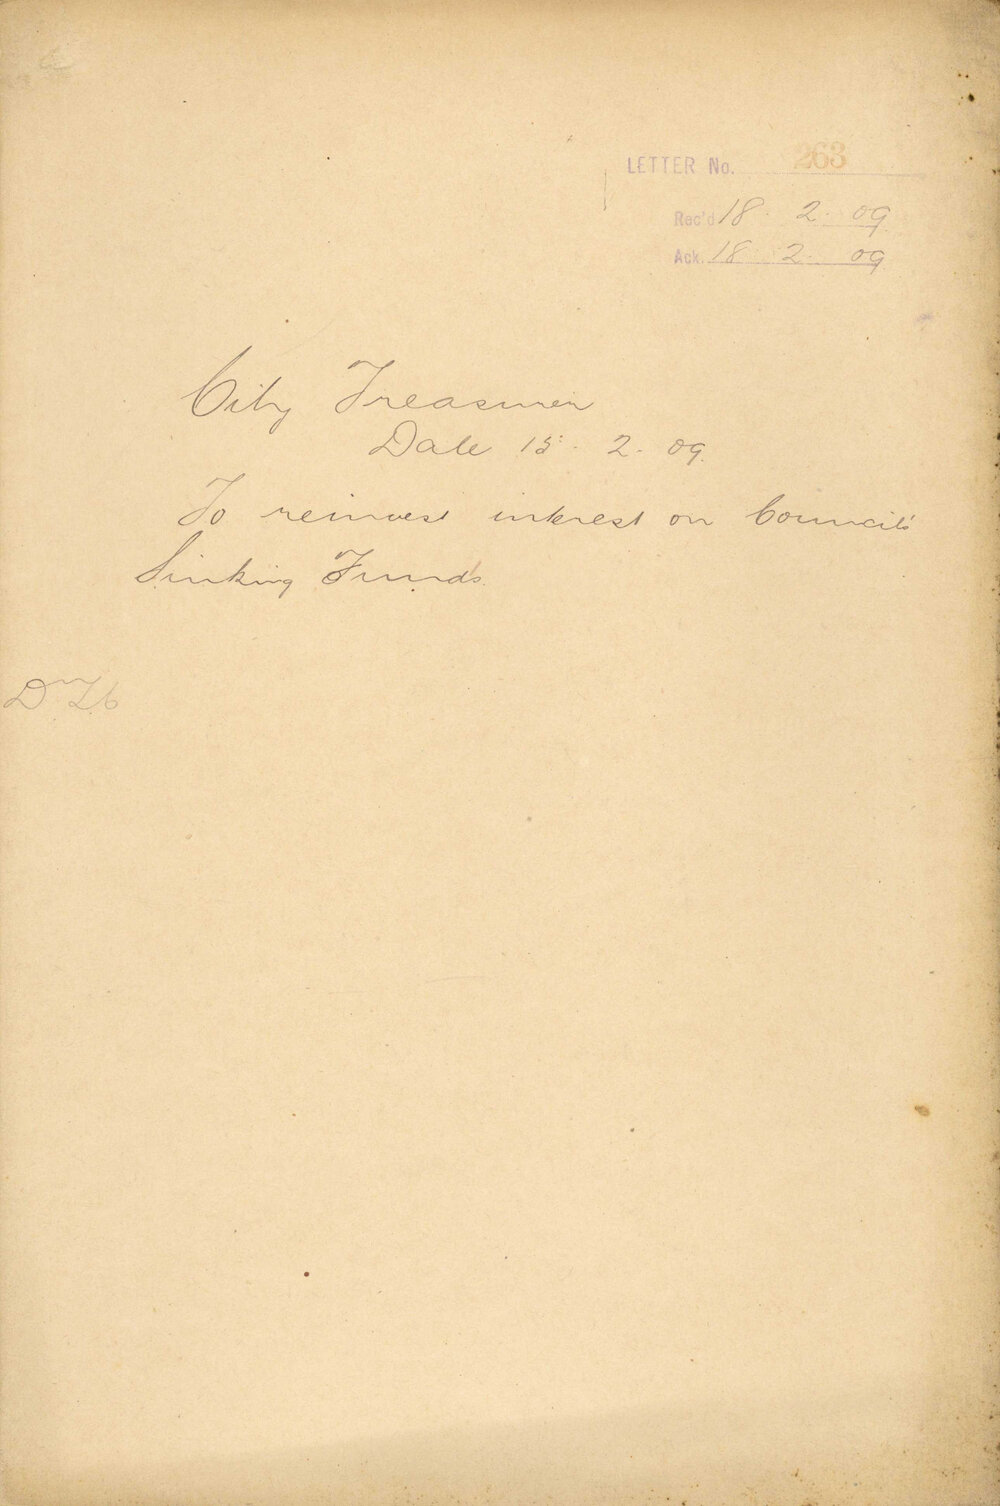 LETTER No. 263
Rec'd 18. 2. 09
Ack. 18. 2. 09
City Treasurer
Date 15. 2. 09.
To reinvest interest on Council's
Sinking Funds.